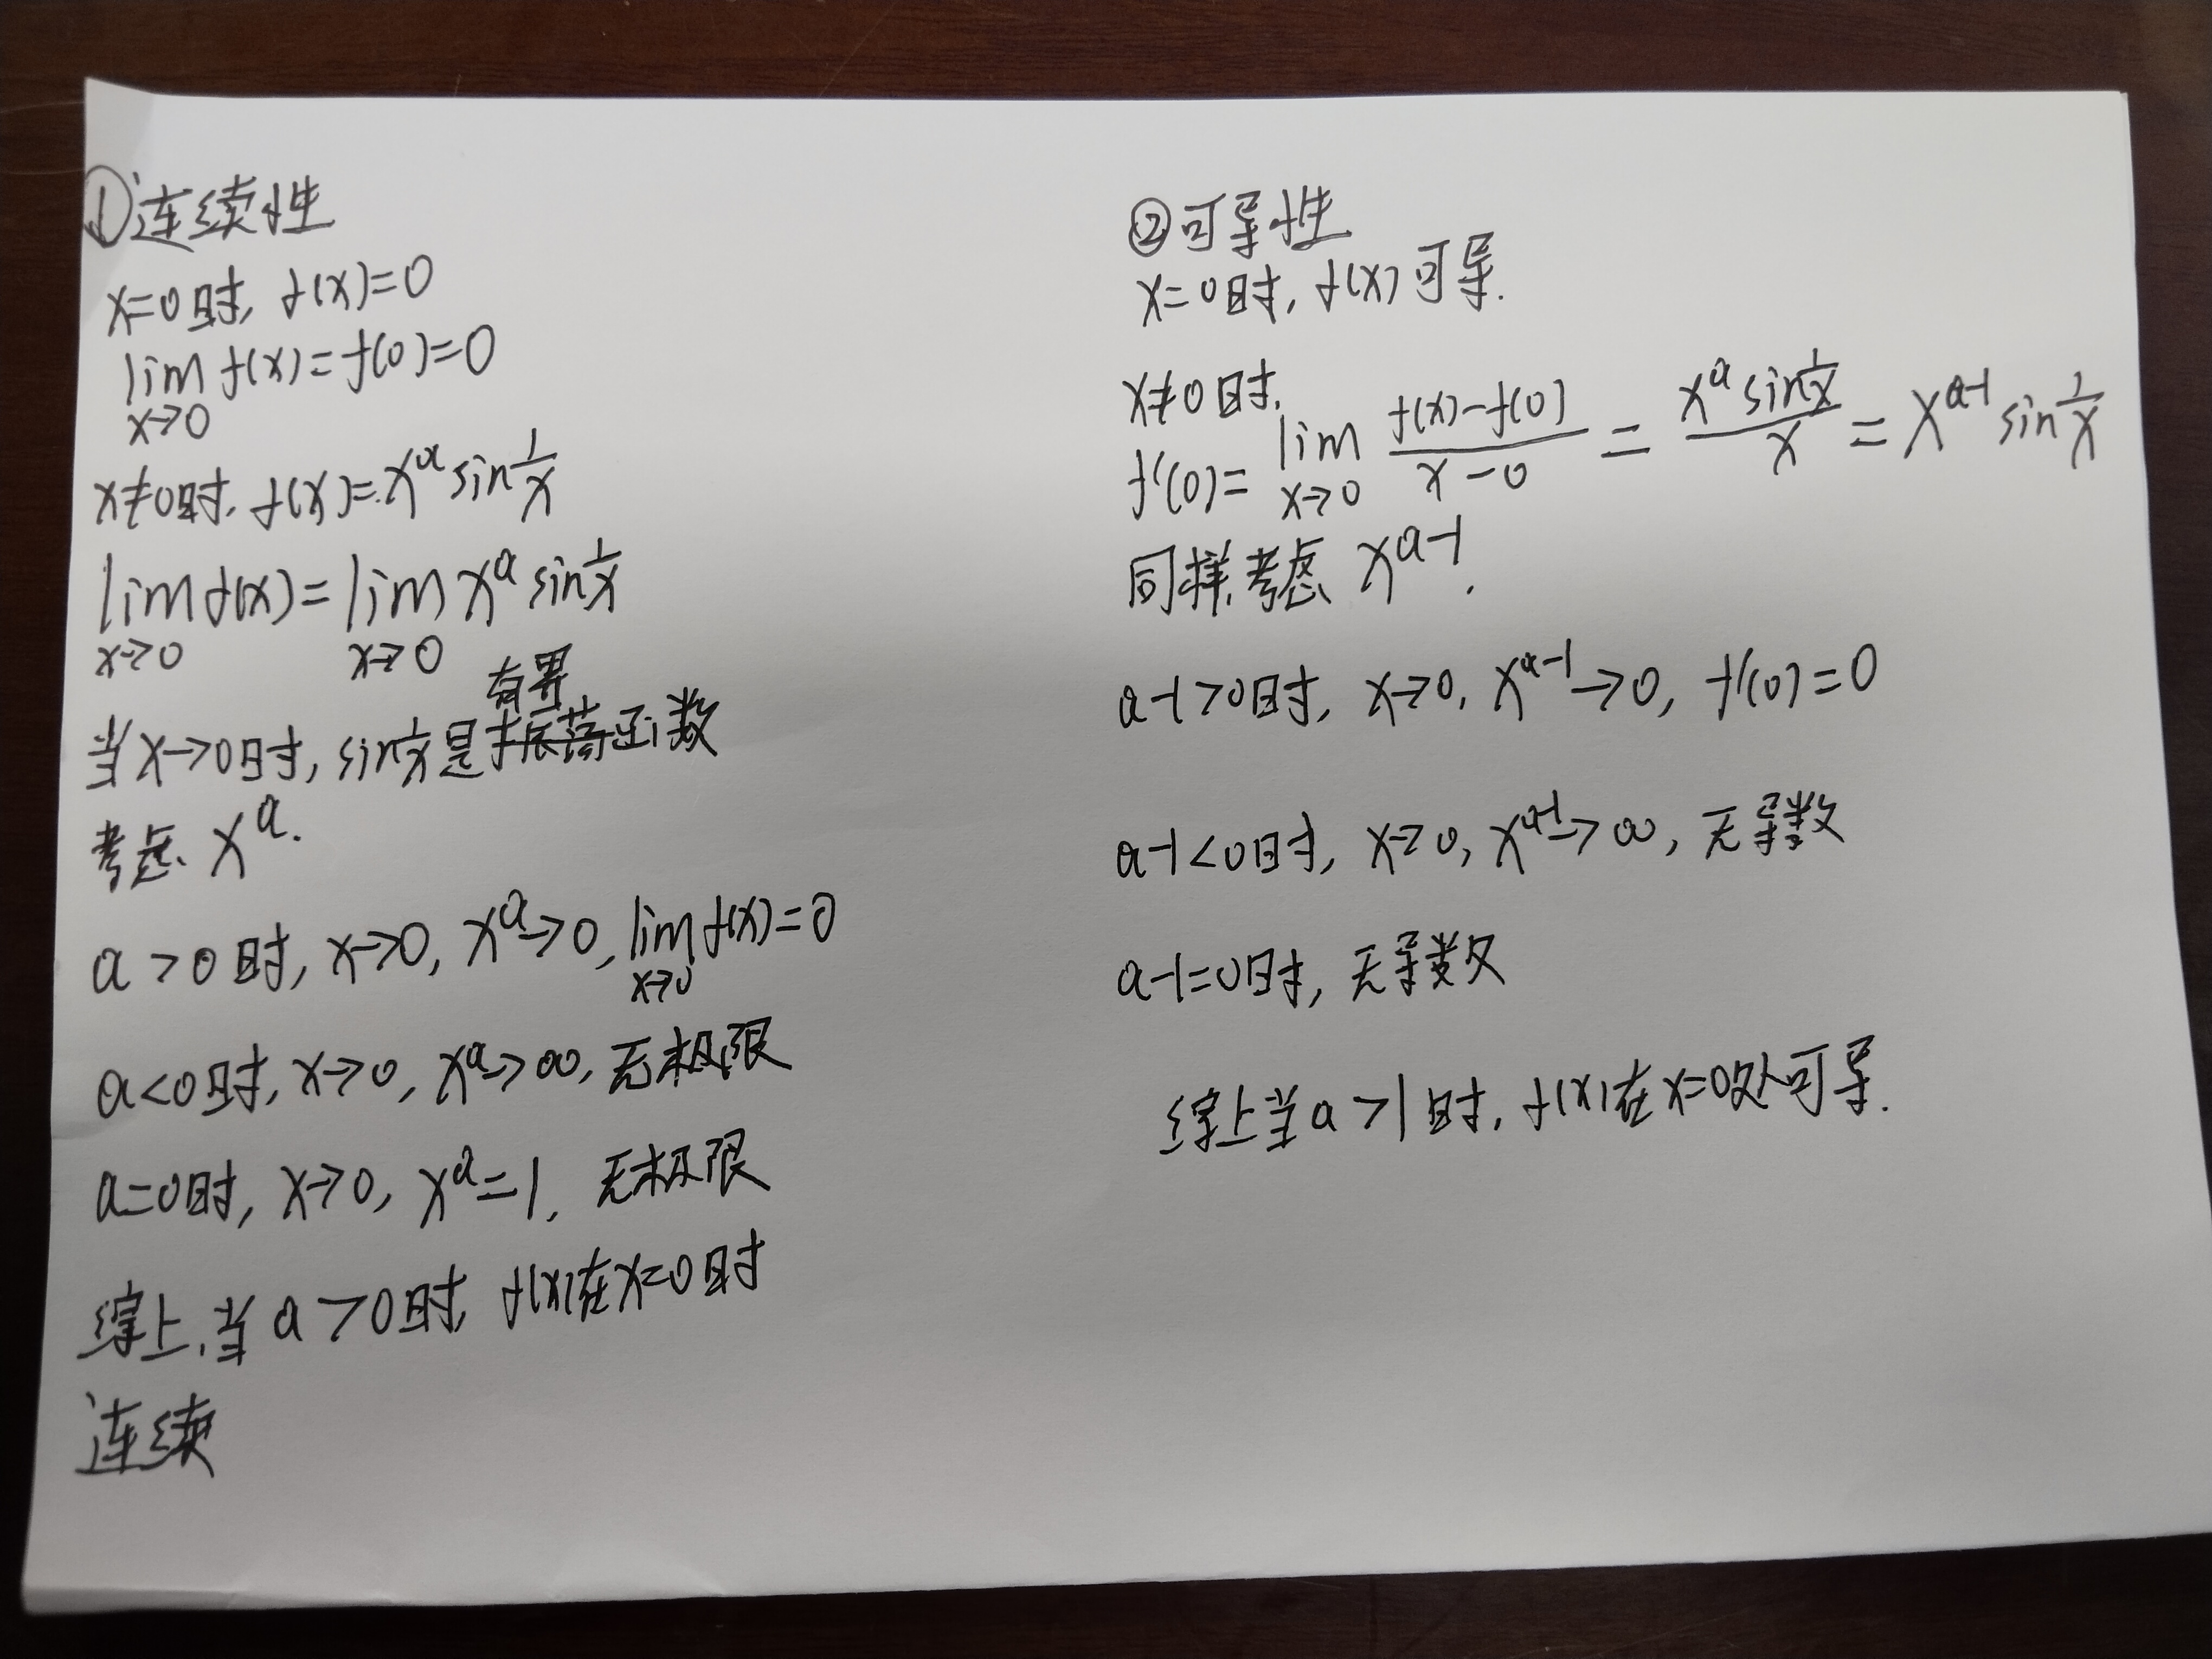 ①连续性
x=0时, f(x)=0
lim f(x)=f(0)=0
x→0
x≠0时, f(x)=x^a sin 1/x
lim f(x)=lim x^a sin 1/x
x→0 x→0
有界
当x→0时, sin 1/x 是振荡函数
考虑 x^a.
a>0时, x→0, x^a→0, lim f(x)=0
x→0
a<0时, x→0, x^a→∞, 无极限
a=0时, x→0, x^a=1, 无极限
综上,当a>0时, f(x)在x=0时
连续
②可导性
x=0时, f(x)可导.
x≠0时,
f'(0)= lim (f(x)-f(0))/(x-0) = (x^a sin 1/x)/x = x^(a-1) sin 1/x
x→0
同样考虑 x^(a-1).
a-1>0时, x→0, x^(a-1)→0, f'(0)=0
a-1<0时, x→0, x^(a-1)→∞, 无导数
a-1=0时, 无导数
综上当a>1时, f(x)在x=0处可导.